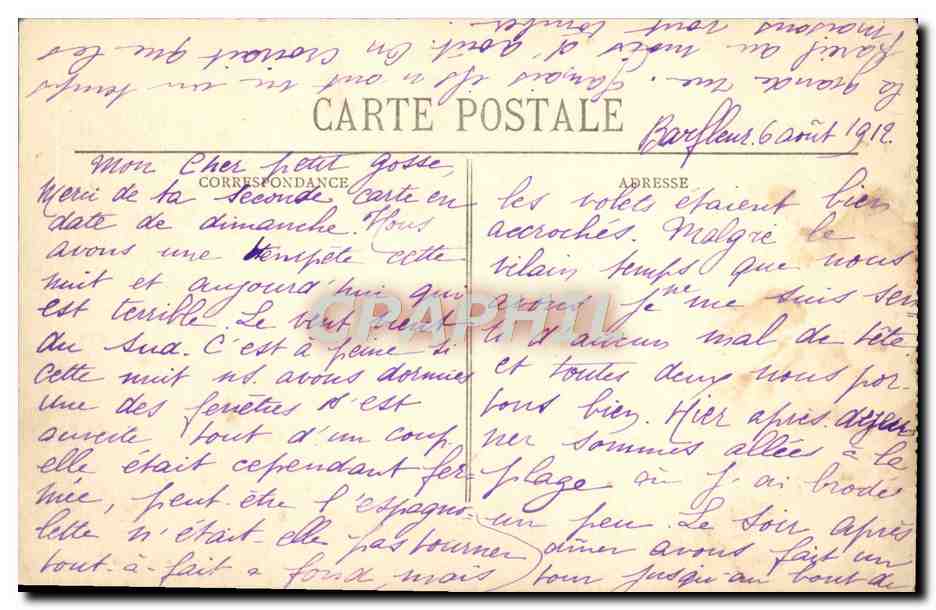 CARTE POSTALE
Barfleur. 6 août 1912.
CORRESPONDANCE
Mon Cher petit gosse,
Merci de ta seconde carte en
date de dimanche. Nous
avons une tempête cette
nuit et aujourd'hui qui
est terrible. Le vent vient
du Sud. C'est à peine si
cette nuit ns. avons dormies
une des fenêtres s'est
ouverte tout d'un coup,
elle était cependant fer-
mée, peut-être l'espagno-
lette n'était-elle pas tourner
tout-à-fait à fond mais
ADRESSE
les volets étaient bien
accrochés. Malgré le
vilain temps que nous
avons je ne me suis sen
ti d'aucun mal de tête
et toutes deux nous por-
tons bien. Hier après déjeu
ner sommes allées à la
plage où j'ai brodé
un peu. Le soir après
dîner avons fait un
tour jusqu'au bout de
la grande rue. Jamais ils n'ont vu un temps
pareil au mois d'août. On croirait que les
maisons vont tomber.
CRAPHIL